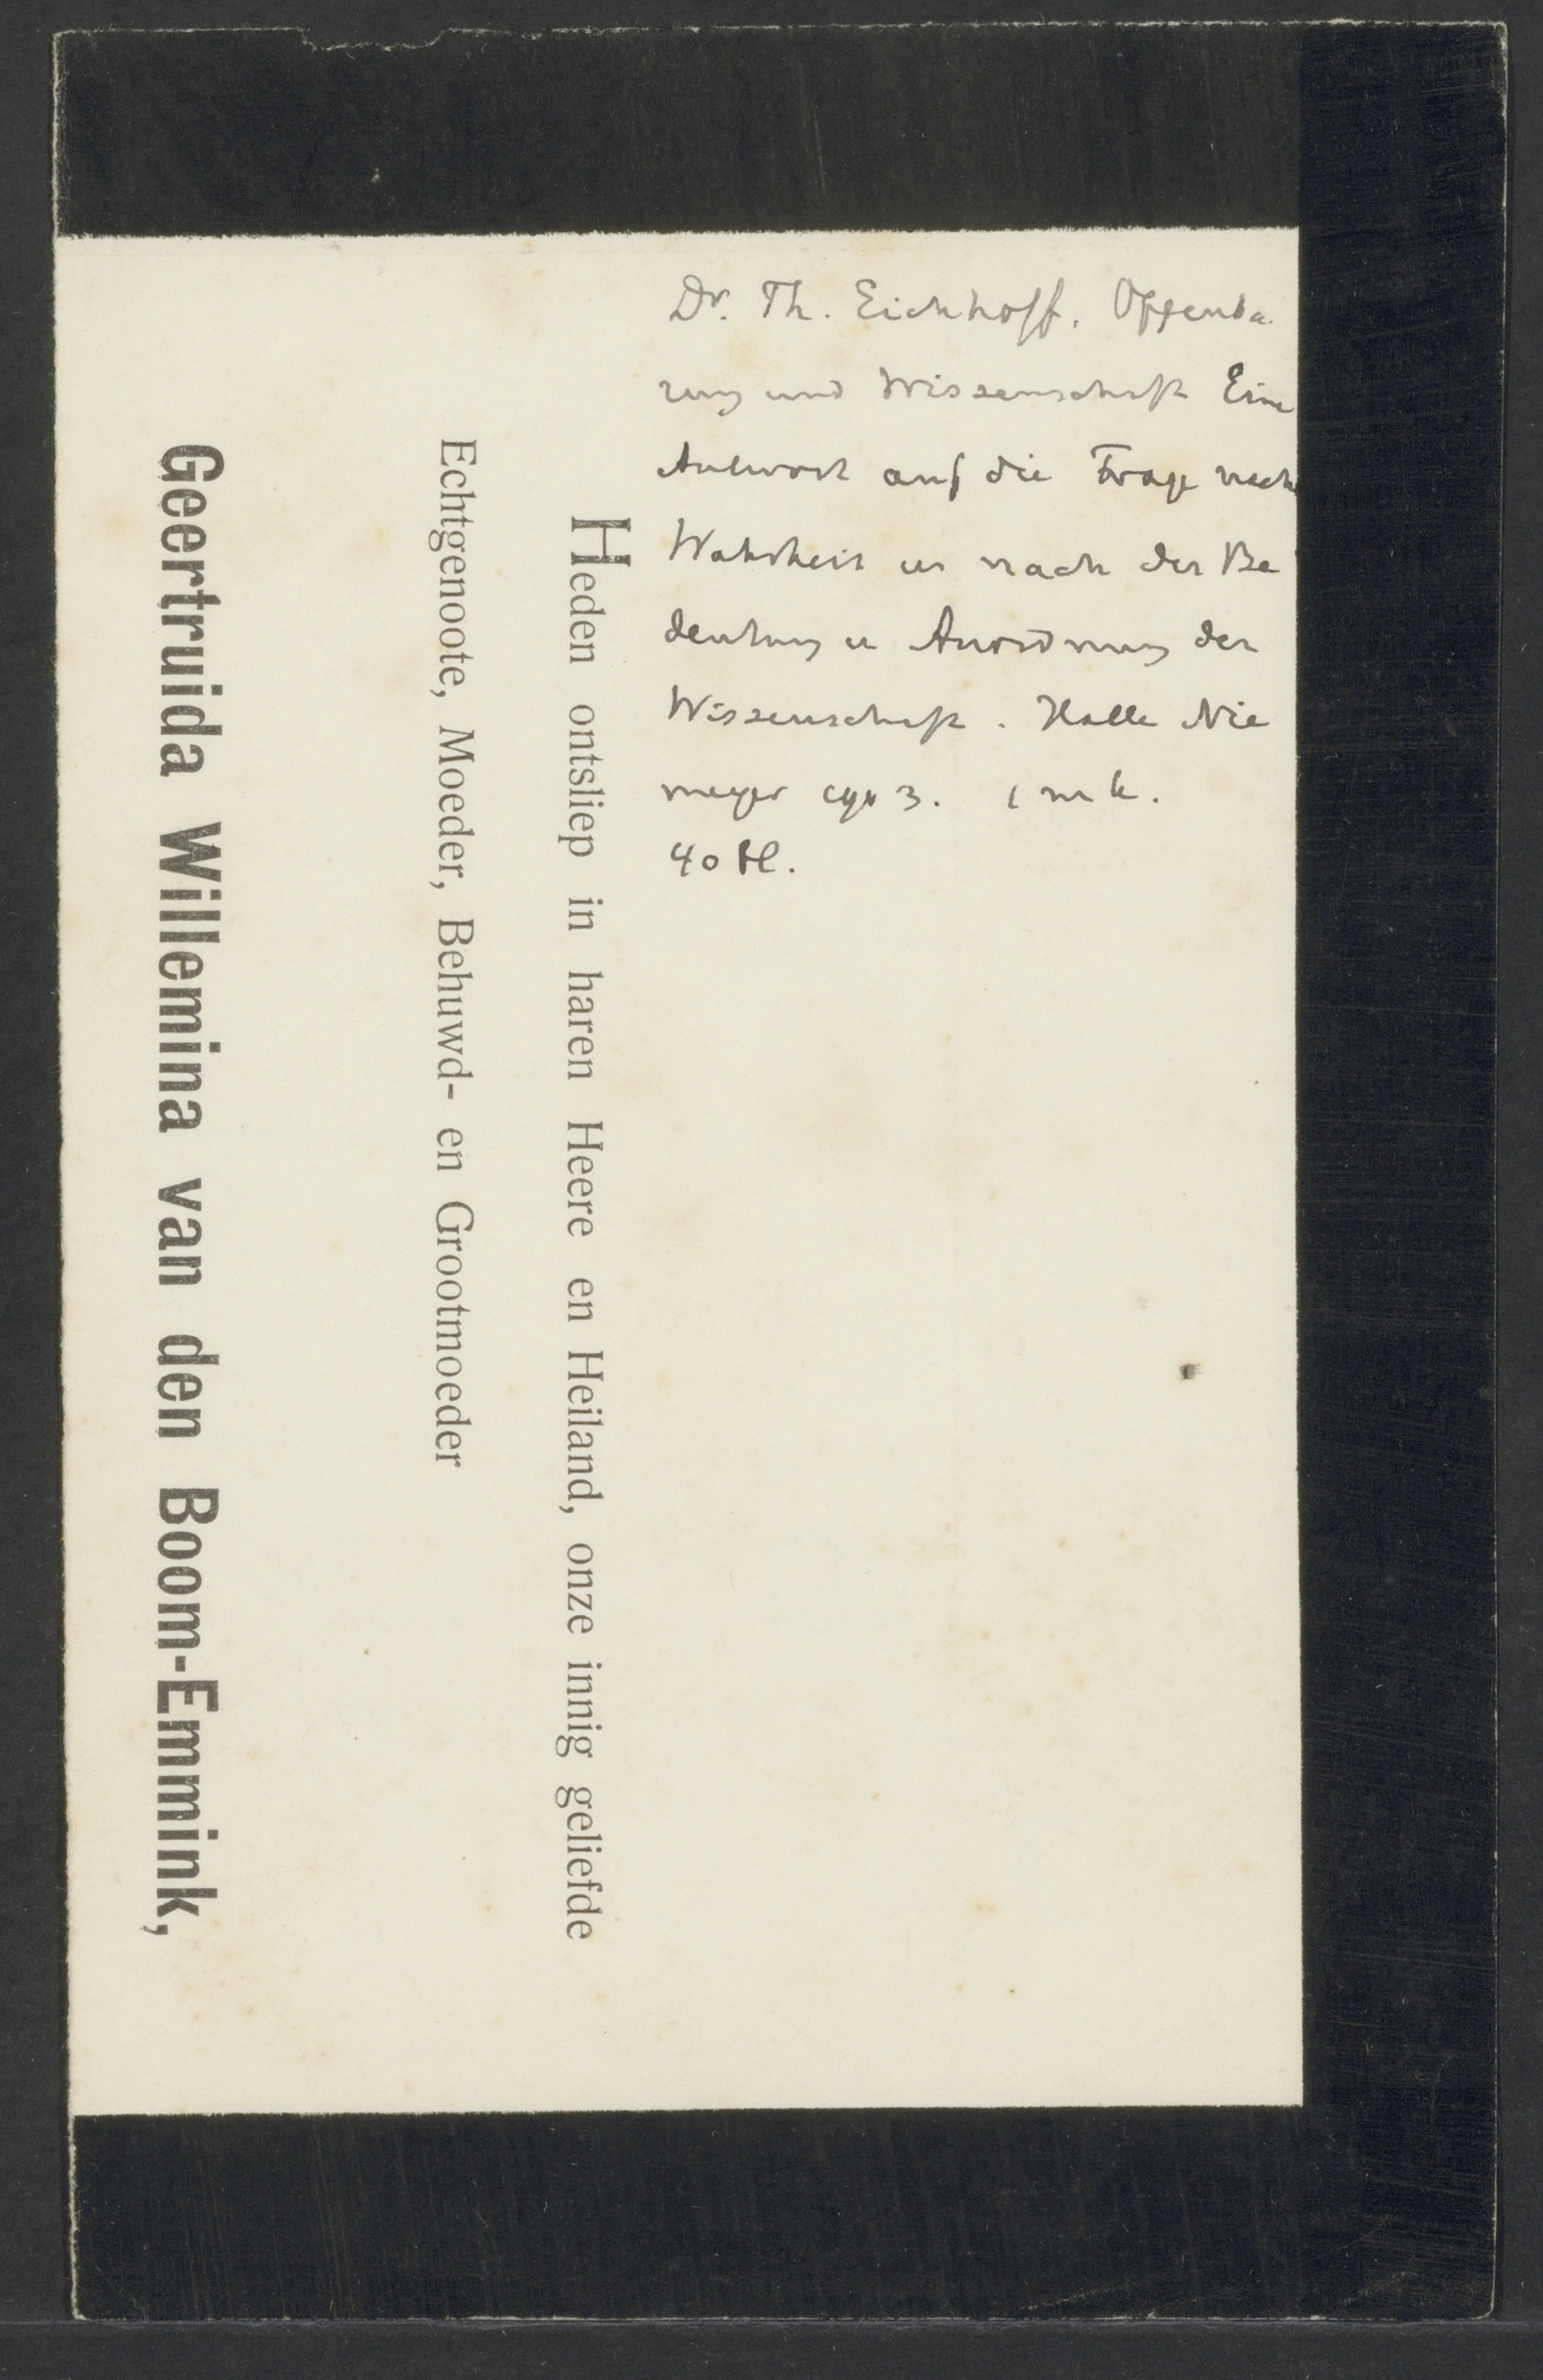 Dr. Th. Eichhoff. Offenba
rung und Wissenschaft Eine
Antwort auf die Frage nach
Wahrheit u nach der Be
deutung u Anordnung der
Wissenschaft. Halle Nie
meyer 1903. 1 mk.
40 bl.
Heden ontsliep in haren Heere en Heiland, onze innig geliefde
Echtgenoote, Moeder, Behuwd- en Grootmoeder
Geertruida Willemina van den Boom-Emmink,